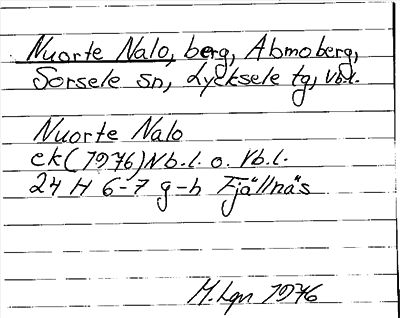 Nuorte Nalo, berg, Abmoberg,
Sorsele sn, Lycksele tg, Vb.l.
Nuorte Nalo
ek (1976) Nb.l. o. Vb.l.
24 H 6-7 g-h Fjällnäs
M.Lgn 1976